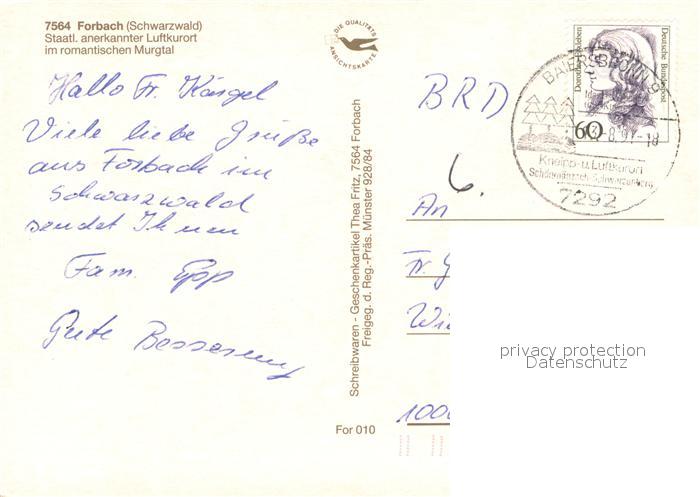 7564 Forbach (Schwarzwald)
Staatl. anerkannter Luftkurort
im romantischen Murgtal
DIE QUALITÄTS
ANSICHTSKARTE
Hallo Fr. Käsgel
Viele liebe Grüße
aus Forbach im
Schwarzwald
sendet Ihnen
Fam. Epp
Gute Besserung
Schreibwaren - Geschenkartikel Thea Fritz, 7564 Forbach
Freigeg. d. Reg.-Präs. Münster 928/84
For 010
BRD
6.
An
Fr. G
Wi
1000
Deutsche Bundespost
60
BAIERSBRONN 9
8.91-18
Kneipp-u.Luftkurort
Schönmünzach-Schwarzenberg
7292
privacy protection
Datenschutz